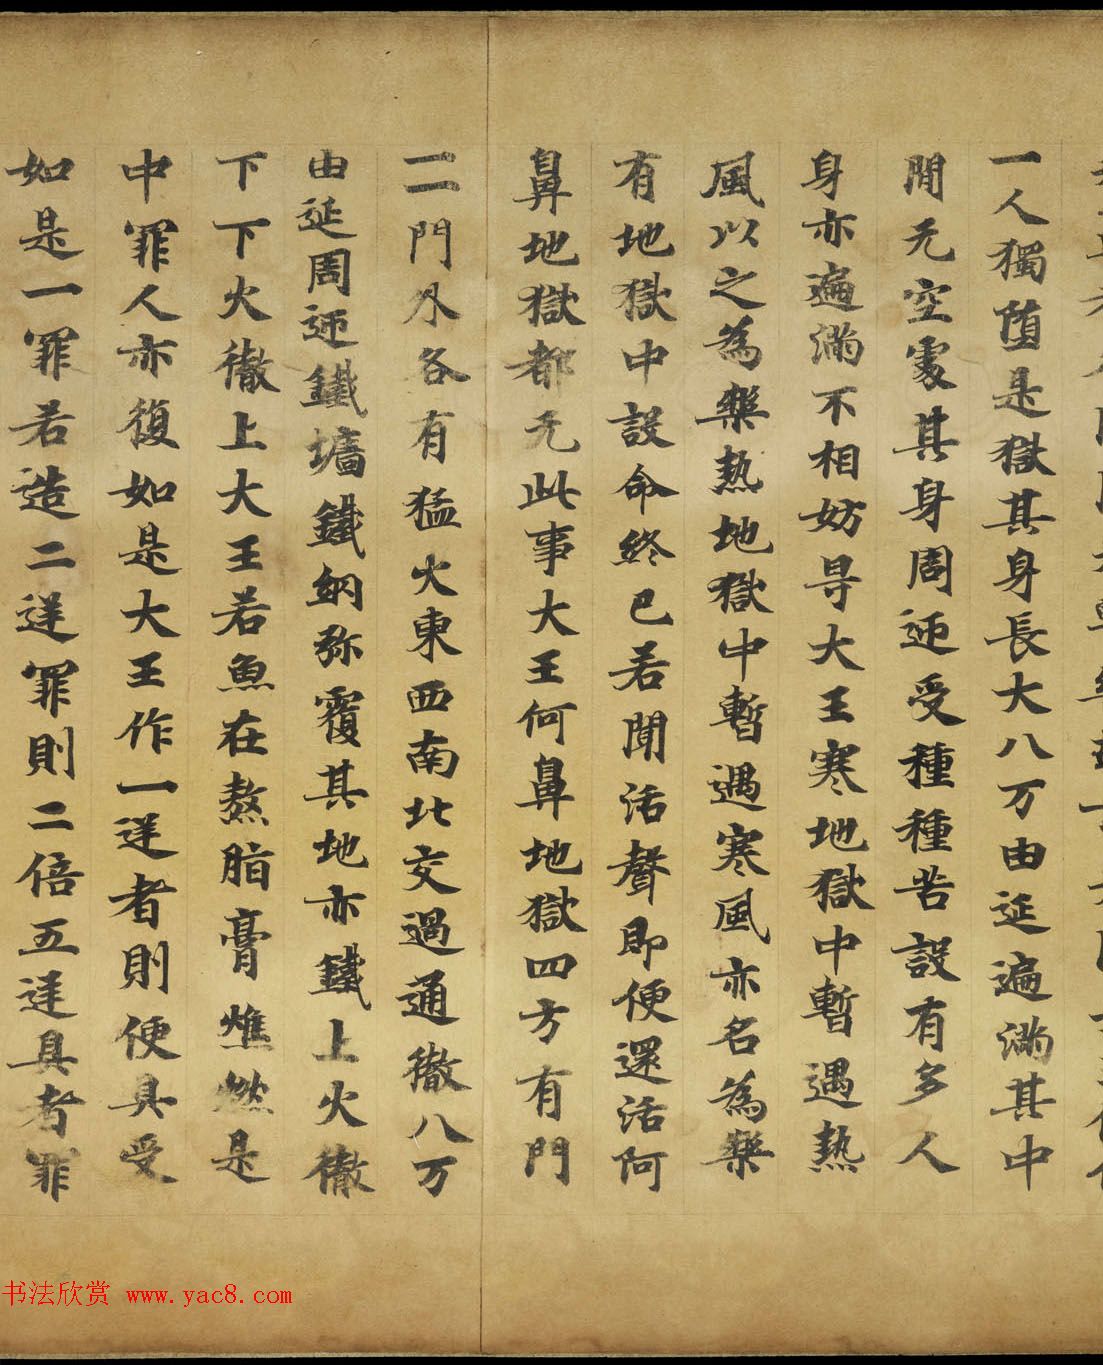 一人獨堕是獄其身長大八万由延遍滿其中
閒无空處其身周迊受種種苦設有多人
身亦遍滿不相妨㝵大王寒地獄中暫遇熱
風以之為樂熱地獄中暫遇寒風亦名為樂
有地獄中設命終已若聞活聲即便還活阿
鼻地獄都无此事大王阿鼻地獄四方有門
一一門外各有猛火東西南北交過通徹八万
由延周迊鐵墻鐵網弥覆其地亦鐵上火徹
下下火徹上大王若魚在熬脂膏燋燃是
中罪人亦復如是大王作一逆者則便具受
如是一罪若造二逆罪則二倍五逆具者罪
书法欣赏 www.yac8.com